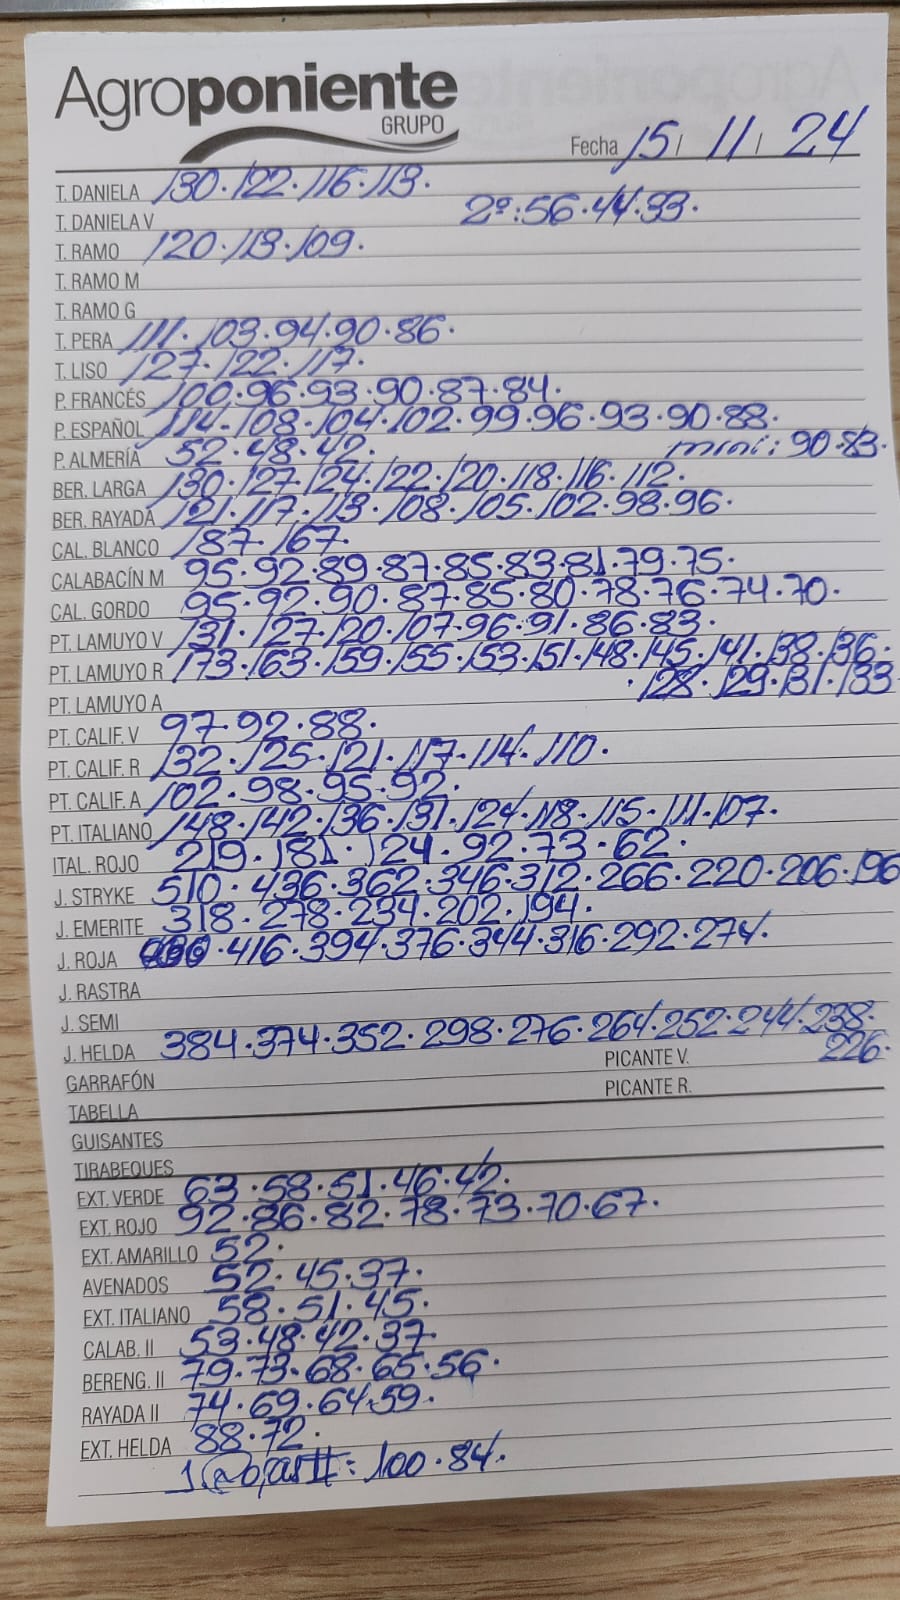 Agroponiente
GRUPO
Fecha 15 / 11 / 24
T. DANIELA 130. 122. 116. 113.
T. DANIELA V 2º: 56. 44. 33.
T. RAMO 120. 113. 109.
T. RAMO M
T. RAMO G
T. PERA 111. 103. 94. 90. 86.
T. LISO 127. 122. 117.
P. FRANCÉS 100. 96. 93. 90. 87. 84.
P. ESPAÑOL 114. 108. 104. 102. 99. 96. 93. 90. 88.
P. ALMERÍA 52. 48. 42. mini: 90. 83.
BER. LARGA 130. 127. 124. 122. 120. 118. 116. 112.
BER. RAYADA 121. 117. 113. 108. 105. 102. 98. 96.
CAL. BLANCO 187. 167.
CALABACÍN M 95. 92. 89. 87. 85. 83. 81. 79. 75.
CAL. GORDO 95. 92. 90. 87. 85. 80. 78. 76. 74. 70.
PT. LAMUYO V 131. 127. 120. 107. 96. 91. 86. 83.
PT. LAMUYO R 173. 163. 159. 155. 153. 151. 148. 145. 141. 138. 136.
. 128. 129. 131. 133
PT. LAMUYO A
PT. CALIF. V 97. 92. 88.
PT. CALIF. R 132. 125. 121. 117. 114. 110.
PT. CALIF. A 102. 98. 95. 92.
PT. ITALIANO 148. 142. 136. 131. 124. 118. 115. 111. 107.
ITAL. ROJO 219. 181. 124. 92. 73. 62.
J. STRYKE 510. 436. 362. 346. 312. 266. 220. 206. 196
J. EMERITE 318. 278. 234. 202. 194.
J. ROJA . 416. 394. 376. 344. 316. 292. 274.
J. RASTRA
J. SEMI
J. HELDA 384. 374. 352. 298. 276. 264. 252. 244. 238.
226.
PICANTE V.
GARRAFÓN
PICANTE R.
TABELLA
GUISANTES
TIRABEQUES
EXT. VERDE 63. 58. 51. 46. 42.
EXT. ROJO 92. 86. 82. 78. 73. 70. 67.
EXT. AMARILLO 52.
AVENADOS 52. 45. 37.
EXT. ITALIANO 58. 51. 45.
CALAB. II 53. 48. 42. 37.
BERENG. II 79. 73. 68. 65. 56.
RAYADA II 74. 69. 64. 59.
EXT. HELDA 88. 72.
100. 84.